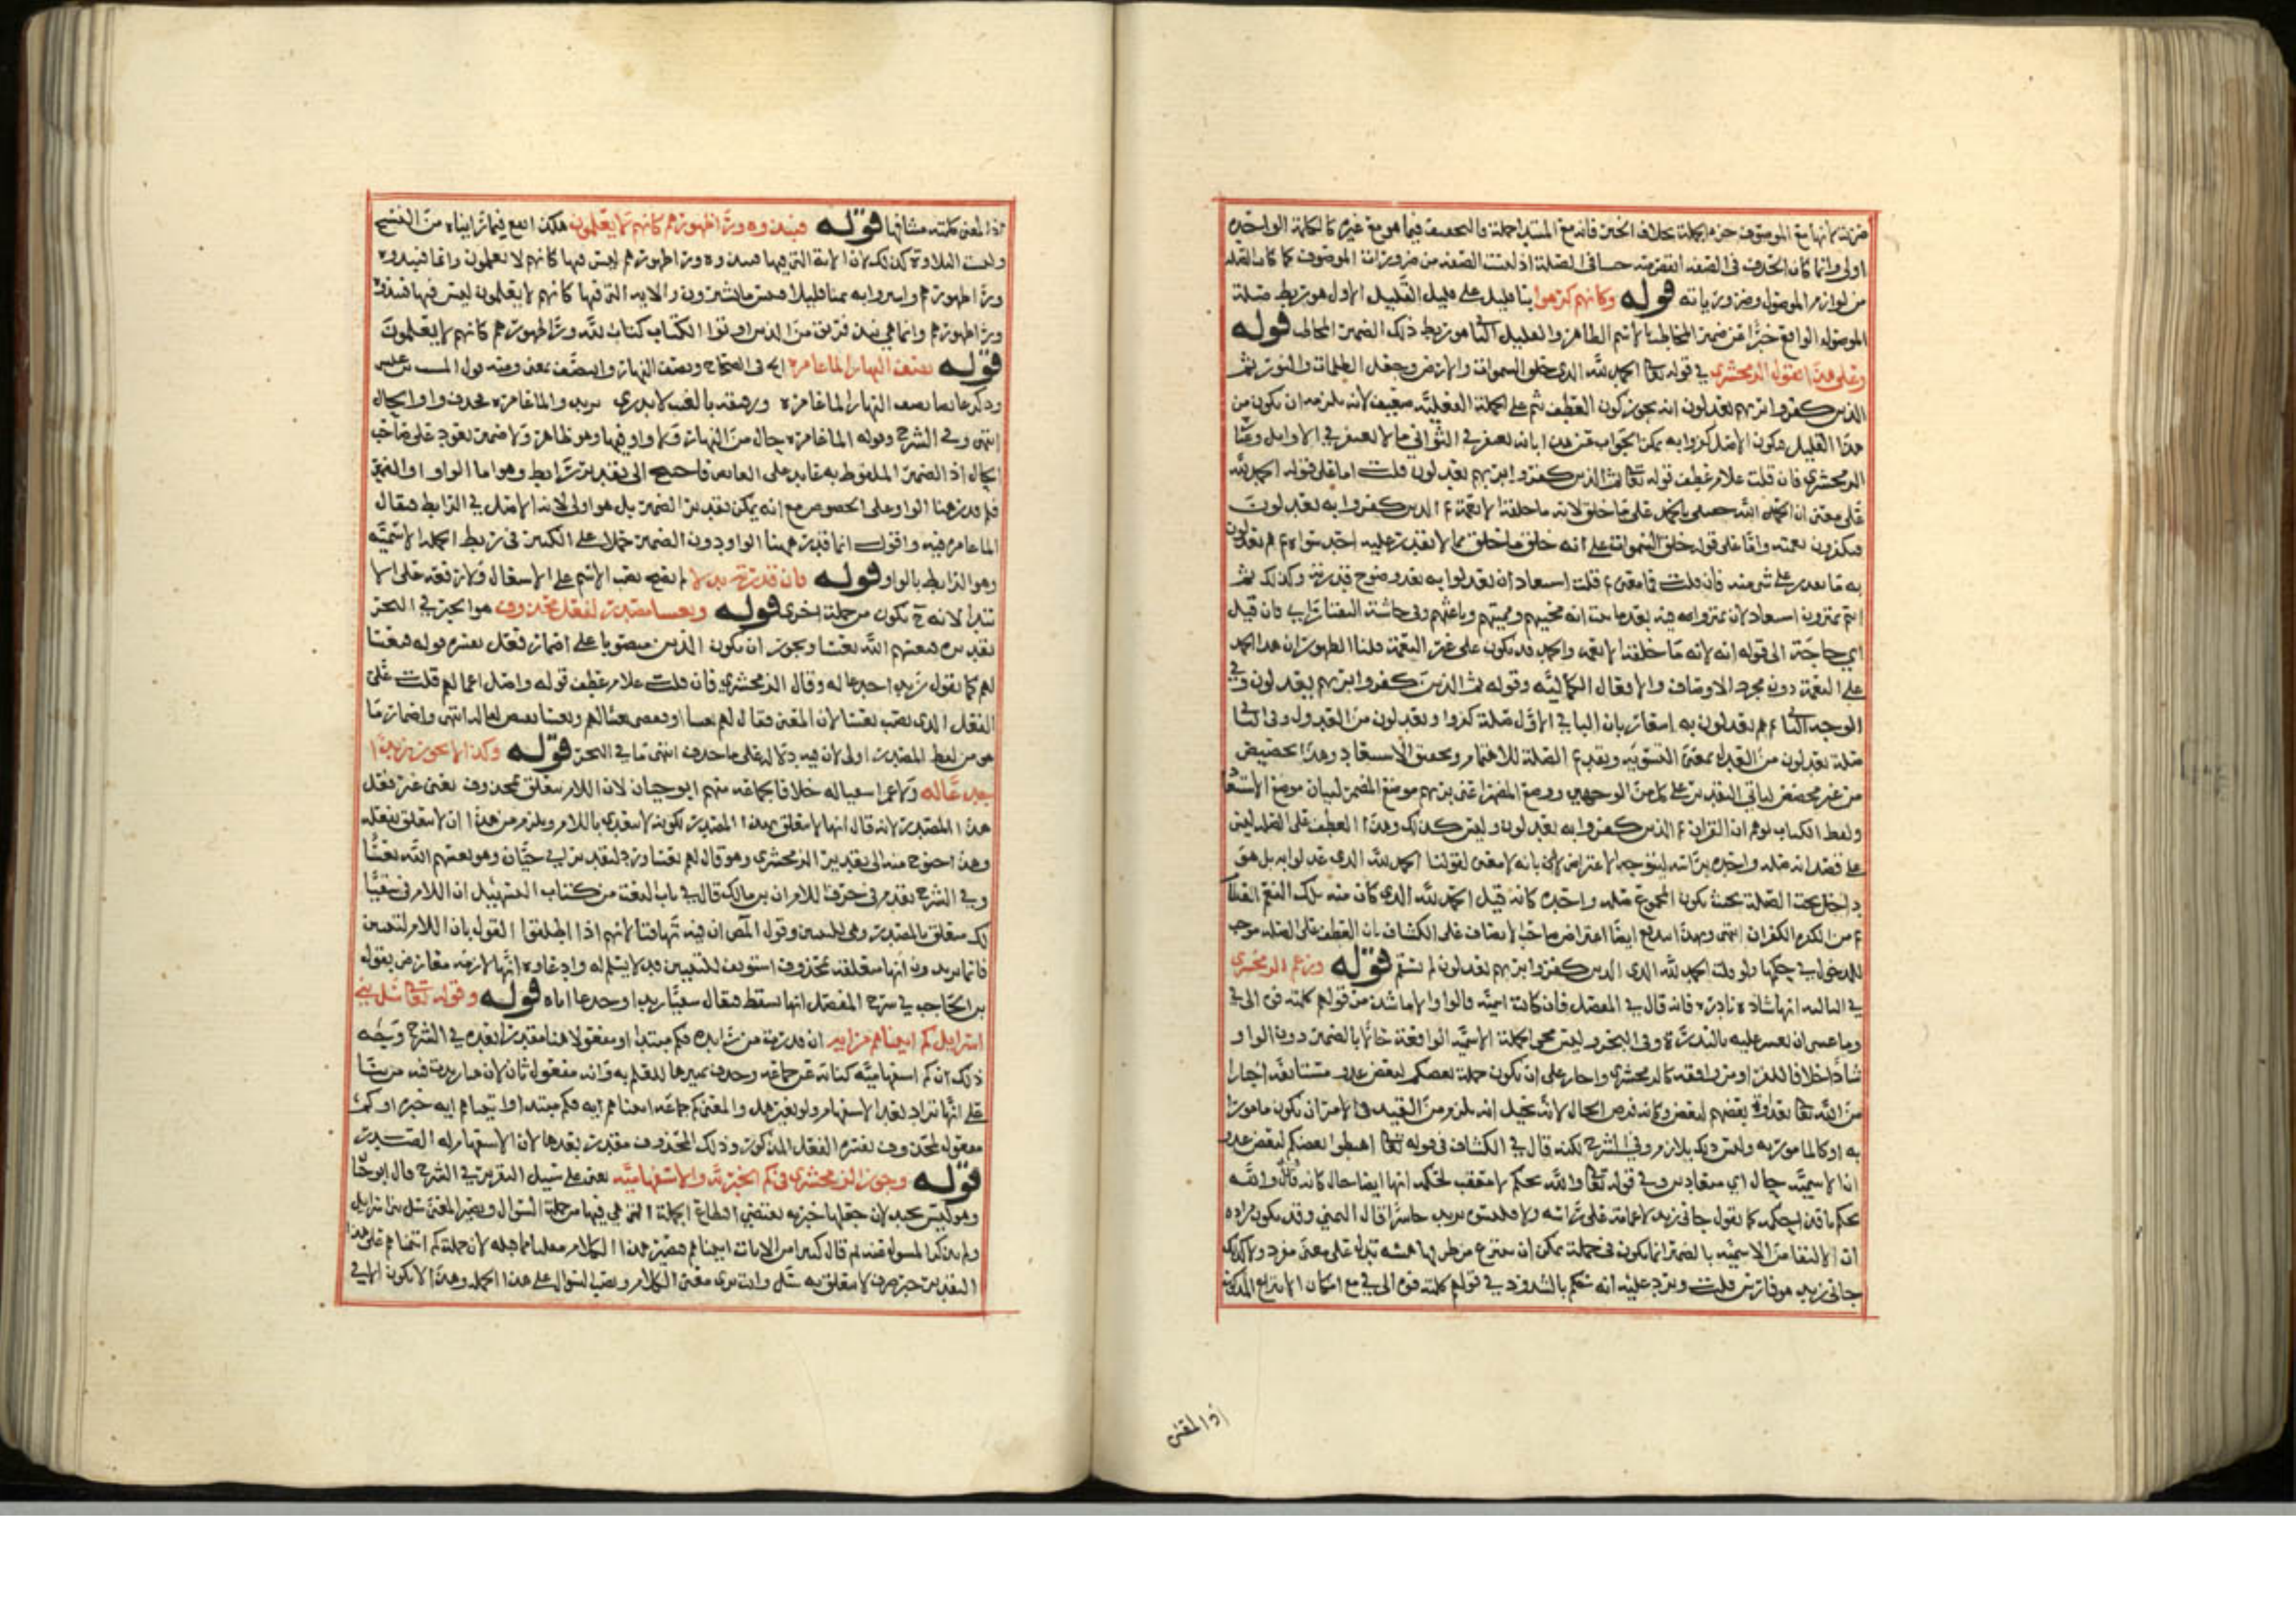 ضرته لانها مع الموصوف جزء الجملة بخلاف الخبر فانه مع المبتدا جملة والتخفيف فيما هو مع غيره كالكلمة الواحدة
اولى وانما كان الحذف في الصفة الصلة اذ ليست الصفة من ضروريات الموصوف كما كانت الصلة
من لوازم الموصول وضرورياته قوله وكانهم كرهوا بنا قليل على قليل القليل الاول هو ربط صلة
الموصول الواقع خبرا عن ضمير المخاطب بالاسم الظاهر والقليل الثاني هو ربط ذلك الضمير المخاطب قوله
وعلى هذا يقول الزمخشري في قوله تعالى الحمد لله الذي خلق السموات والارض وجعل الظلمات والنور ثم
الذين كفروا بربهم يعدلون انه يجوز كون العطف بثم على الجملة الفعلية ضعيف لانه يلزمه ان يكون من
هذا القليل فيكون الاصل كفروا به يمكن الجواب عن هذا بانه يغتفر في الثواني ما لا يغتفر في الاوايل
الزمخشري فان قلت علام عطف قوله تعالى ثم الذين كفروا بربهم يعدلون قلت اما على قوله الحمد لله
على معنى ان الله حقيق بالحمد على ما خلق لانه ما خلقه الا نعمة ثم الذين كفروا به يعدلون
فيكفرون نعمته واما على قوله خلق السموات على انه خلق ما خلق مما لا يقدر عليه احد سواه ثم هم يعدلون
به ما لا يقدر على شي منه فان قلت فما معنى ثم قلت استبعاد ان يعدلوا به بعد وضوح قدرته وكذلك ثم
انتم تمترون استبعاد لان تمتروا فيه بعد ما ثبت انه محييهم ومميتهم وباعثهم وفي حاشية التفتازاني فان قيل
اي حاجة الى قوله انه لانه ما خلقه الا نعمة والحمد قد يكون على غير النعمة قلنا الظهور ان هذا الحمد
على النعمة دون مجرد الاوصاف والافعال الكمالية وقوله ثم الذين كفروا بربهم يعدلون وفي
الوجه الثاني ثم هم يعدلون به اشعار بان البا في الاول صلة كفروا ويعدلون من العدول وفي الثاني
صلة يعدلون من العدل بمعنى التسوية وتقديم الصلة للاهتمام وتحقيق الاستبعاد وهذا تخصيص
من غير مخصص لتاتي التقديرين على كل من الوجهين ووضع المظهر اعني بربهم موضع المضمر لبيان موضع الاستبعاد
على قصد انه صلة واحدة براسه ليتوجه الاعتراض بانه لا معنى لقولنا الحمد لله الذي عدلوا به بل هو
داخل تحت الصلة بحيث يكون المجموع صلة واحدة كانه قيل الحمد لله الذي كان منه تلك النعم العظام
ثم من الكفرة الكفران انتهى وبهذا اندفع ايضا اعتراض صاحب الانصاف على الكشاف بان العطف على الصلة موجب
للدخول في حكمها ولو قلت الحمد لله الذي الذين كفروا بربهم يعدلون لم يستقم قوله وزعم الزمخشري
في الثالثة انها شاذة نادرة فانه قال في المفصل فان كانت اسمية فالواو الا ما شذ من قولهم كلمته فوه الى في
وما عسى ان يعثر عليه بالندرة وفي البحر وليس مجي الجملة الاسمية الواقعة حالا بالضمير دون الواو
شاذا خلافا للفرا ومن وافقه كالزمخشري واجاز على ان تكون جملة بعضكم لبعض عدو مستانفة اخبارا
من الله تعالى بعداوة بعضهم لبعض وكانه فر من الحال لانه تخيل انه يلزم من القيد في الامر ان يكون مامورا
به او كالمامور به وليس ذلك بلازم وفي الشرح لكنه قال في الكشاف في قوله تعالى اهبطوا بعضكم لبعض عدو
ان الاسمية حال اي متعادين وفي قوله تعالى والله يحكم لا معقب لحكمه انها ايضا حال كانه قال والله
يحكم نافذا حكمه كما تقول جاني زيد لا عمامة على راسه ولا قلنسوة تريد حاسرا قال اليمني وقد يكون مراده
ان الاكتفا من الاسمية بالضمير انما يكون في جملة يمكن ان ينتزع من طرفيها هيئة تدل على معنى مفرد ولا كذلك
جاني زيد هو فارس قلت ويرد عليه انه حكم بالشذوذ في قولهم كلمته فوه الى في مع امكان الانتزاع المذكور
اذ المعنى
اذ المعنى كلمته مشافها قوله فنبذوه وراء ظهورهم كانهم لا يعلمون هكذا وقع فيما رايناه من النسخ
وليست التلاوة كذلك لان الاية التي فيها فنبذوه وراء ظهورهم ليس فيها كانهم لا يعلمون وانما فنبذوه
وراء ظهورهم واشتروا به ثمنا قليلا فبئس ما يشترون والاية التي فيها كانهم لا يعلمون ليس فيها فنبذوه
وراء ظهورهم وانما هي نبذ فريق من الذين اوتوا الكتاب كتاب الله وراء ظهورهم كانهم لا يعلمون
قوله نصف النهار الماء غامره اي في الصحاح ونصف النهار وانتصف بمعنى ومنه قول المسيب بن علس
وذكر غائصا نصف النهار الماء غامره ورفيقه بالغيب لا يدري يريد والماء غامره فحذف واو الحال
انتهى وفي الشرح وقوله الماء غامره حال من النهار ولا واو فيها وهو ظاهر ولا ضمير يعود على صاحب
الحال اذ الضمير الملفوظ به عايد على الغائص فاحتيج الى تقدير رابط وهو اما الواو او الضمير
فلم قدر هنا الواو على الخصوص مع انه يمكن تقدير الضمير بل هو اولى لانه الاصل في الرابط فيقال
الماء غامره فيه واقول انما قدر ههنا الواو دون الضمير حملا على الكثير في ربط الجملة الاسمية
وهو الرابط بالواو قوله فان قدرت لم يصح نصب الاسم على الاشتغال ولا رفعه على الا
بتدا لانه ح يكون من جملة اخرى قوله وتعسا مصدر لفعل محذوف هو الخبر في البحر
تقديره فتعسهم الله تعسا ويجوز ان يكون الذين منصوبا على اضمار فعل يفسره قوله فتعسا
لهم كما تقول زيدا جدعا له وقال الزمخشري فان قلت علام عطف قوله واضل اعمالهم قلت على
الفعل الذي نصب تعسا لان المعنى فقال تعسا لهم او فقضى تعسا لهم وتعسا نقيض لعا له انتهى واضمار ما
هو من لفظ المصدر اولى لان فيه دلالة على ما حذف انتهى ما في البحر قوله وكذا لا يجوز زيدا
جدعا له ولا عمرا سقيا له خلافا لجماعة منهم ابو حيان لان اللام متعلق بمحذوف يعني غير فعل
هذا المصدر لانه قال انها لا تتعلق بهذا المصدر لكونه لا يتعدى باللام ويلزم من هذا ان لا تتعلق بفعله
وهذا احتيج منه الى تقدير الزمخشري وهو قال لهم تعسا ورد لتقدير ابي حيان وهو تعسهم الله تعسا
وفي الشرح تقدم في حرف اللام ان بن مالك قال في باب النعت من كتاب التسهيل ان اللام في سقيا
لك متعلق بالمصدر وهي للتبيين وقول المص ان فيه تهافتا لانهم اذا اطلقوا القول بان اللام للتبيين
فانما يريدون انها متعلقة بمحذوف استونف للتبيين قد لا يسلم له وادعاوه انها لازمة معارض بقول
بن الحاجب في شرح المفصل انها تسقط فيقال سقيا زيدا وجدعا اياه قوله وقوله تعالى سل بني
اسرائيل كم اتيناهم من اية ان قدرت من زايدة فكم مبتدا او مفعول لاتينا مقدرا بعده في الشرح وجه
ذلك ان كم استفهامية كناية عن جماعة وحذف مميزها للعلم به واية مفعول ثان لان من زايدة فيه
على انها تزاد بعد الاستفهام ولو بغير هل والمعنى كم جماعة اتيناهم اية فكم مبتدا واتيناهم اية خبره او كم
مفعول لمحذوف يفسره الفعل المذكور وذلك المحذوف مقدر بعدها لان الاستفهام له الصدر
قوله وجوز الزمخشري في كم الخبرية والاستفهامية يعني على سبيل التقرير في الشرح قال ابو حيان
وهو ليس بجيد لان جعلها خبرية يقتضي اقتطاع الجملة التي هي فيها من جملة السوال ويصير المعنى سل بني اسرائيل
ولم يذكر المسول عنه ثم قال كثيرا من الايات اتيناهم فيصير هذا الكلام مفلتا مما قبله لان جملة كم اتيناهم على هذا
التقدير خبر صرف لا يتعلق به سل وانت ترى معنى الكلام ونصب السوال على هذه الجملة وهذا لا يكون الا في